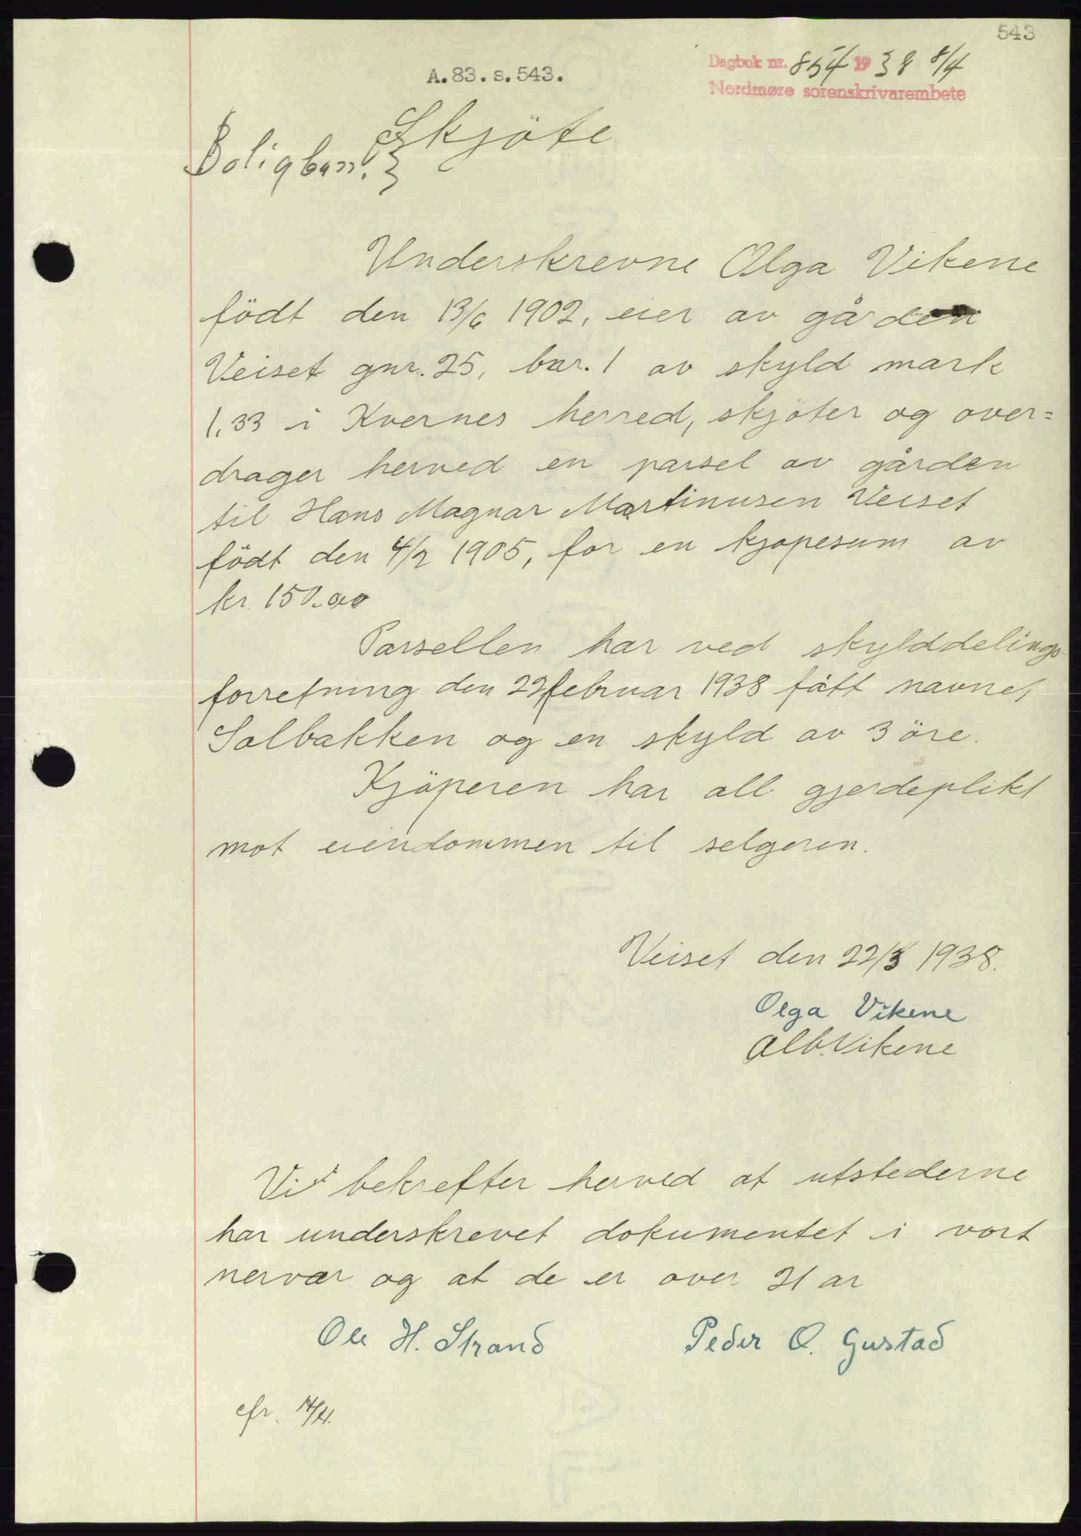 543
A.83.s.543.
Dagbok nr. 854 1938 8/4
Nordmøre sorenskrivarembete
Skjöte
Underskrevne Olga Vikene
födt den 13/6 1902, eier av gården
Veiset gnr. 25, bnr. 1 av skyld mark
1,33 i Kvernes herred, skjöter og over=
drager herved en parsel av gården
til Hans Magnar Martinusen Veiset
födt den 4/2 1905, for en kjøpesum av
kr. 150.00
Parsellen har ved skylddelings
forretning den 22 februar 1938 fått navnet
Solbakken og en skyld av 3 öre.
Kjöperen har all gjerdeplikt
mot eiendommen til selgeren.
Veiset den 22/3 1938.
Olga Vikene
Alb. Vikene
Vi bekrefter herved at utstederne
har underskrevet dokumentet i vort
nervær og at de er over 21 år
Ole H. Strand Peder O. Gustad